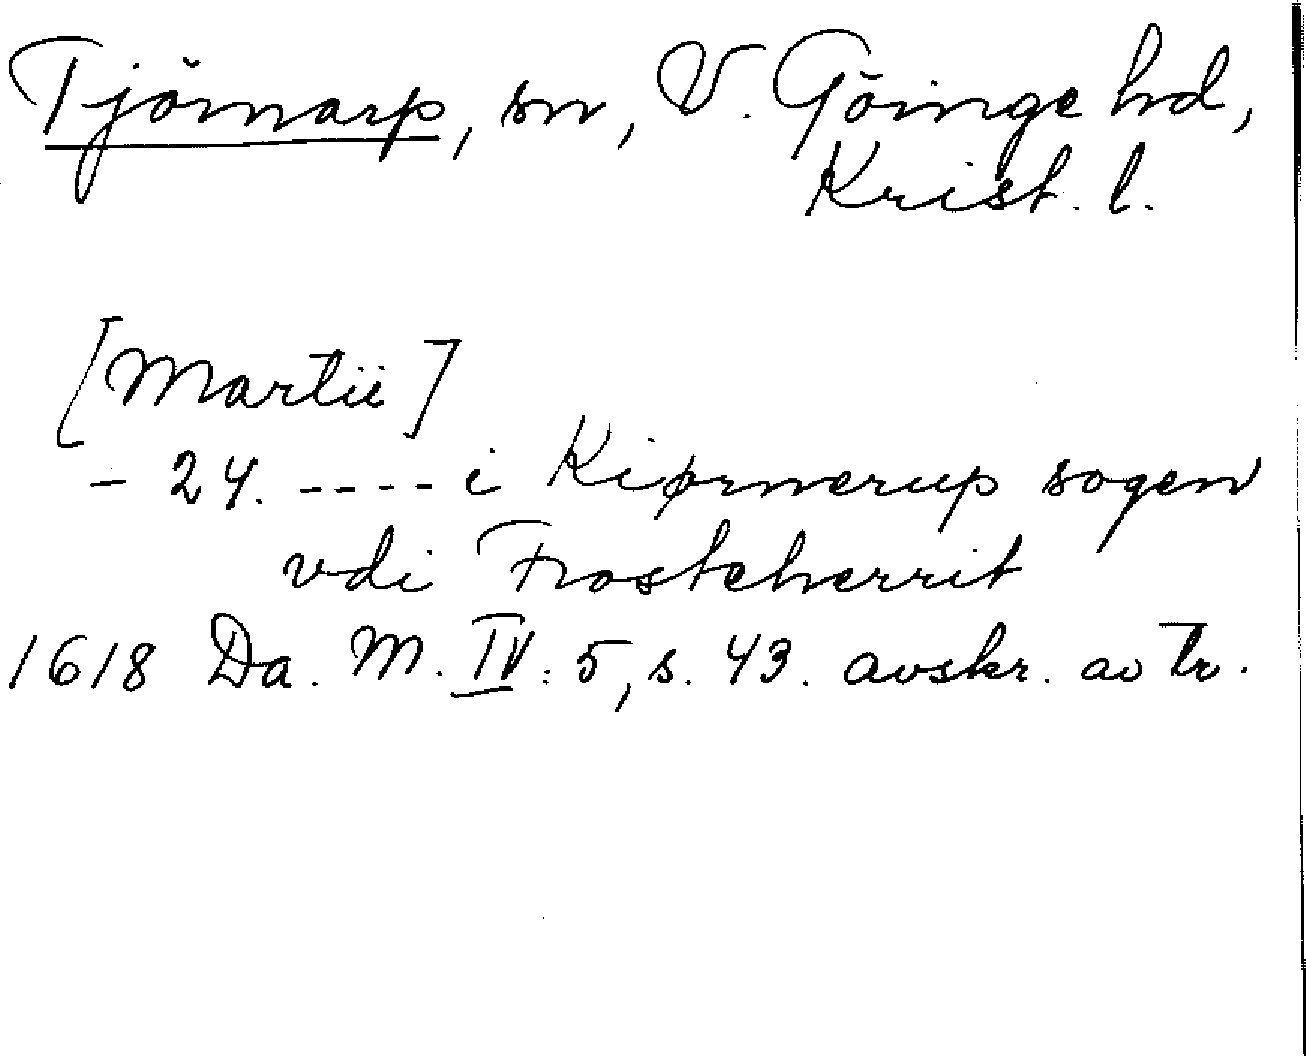 Tjörnarp, sn, V. Göinge hd,
Krist. l.
[Martii]
- 24. ---- i Kiørnerup sogen
vdi Frosteherrit
1618 Da. M. IV: 5, s. 43. avskr. av tr.